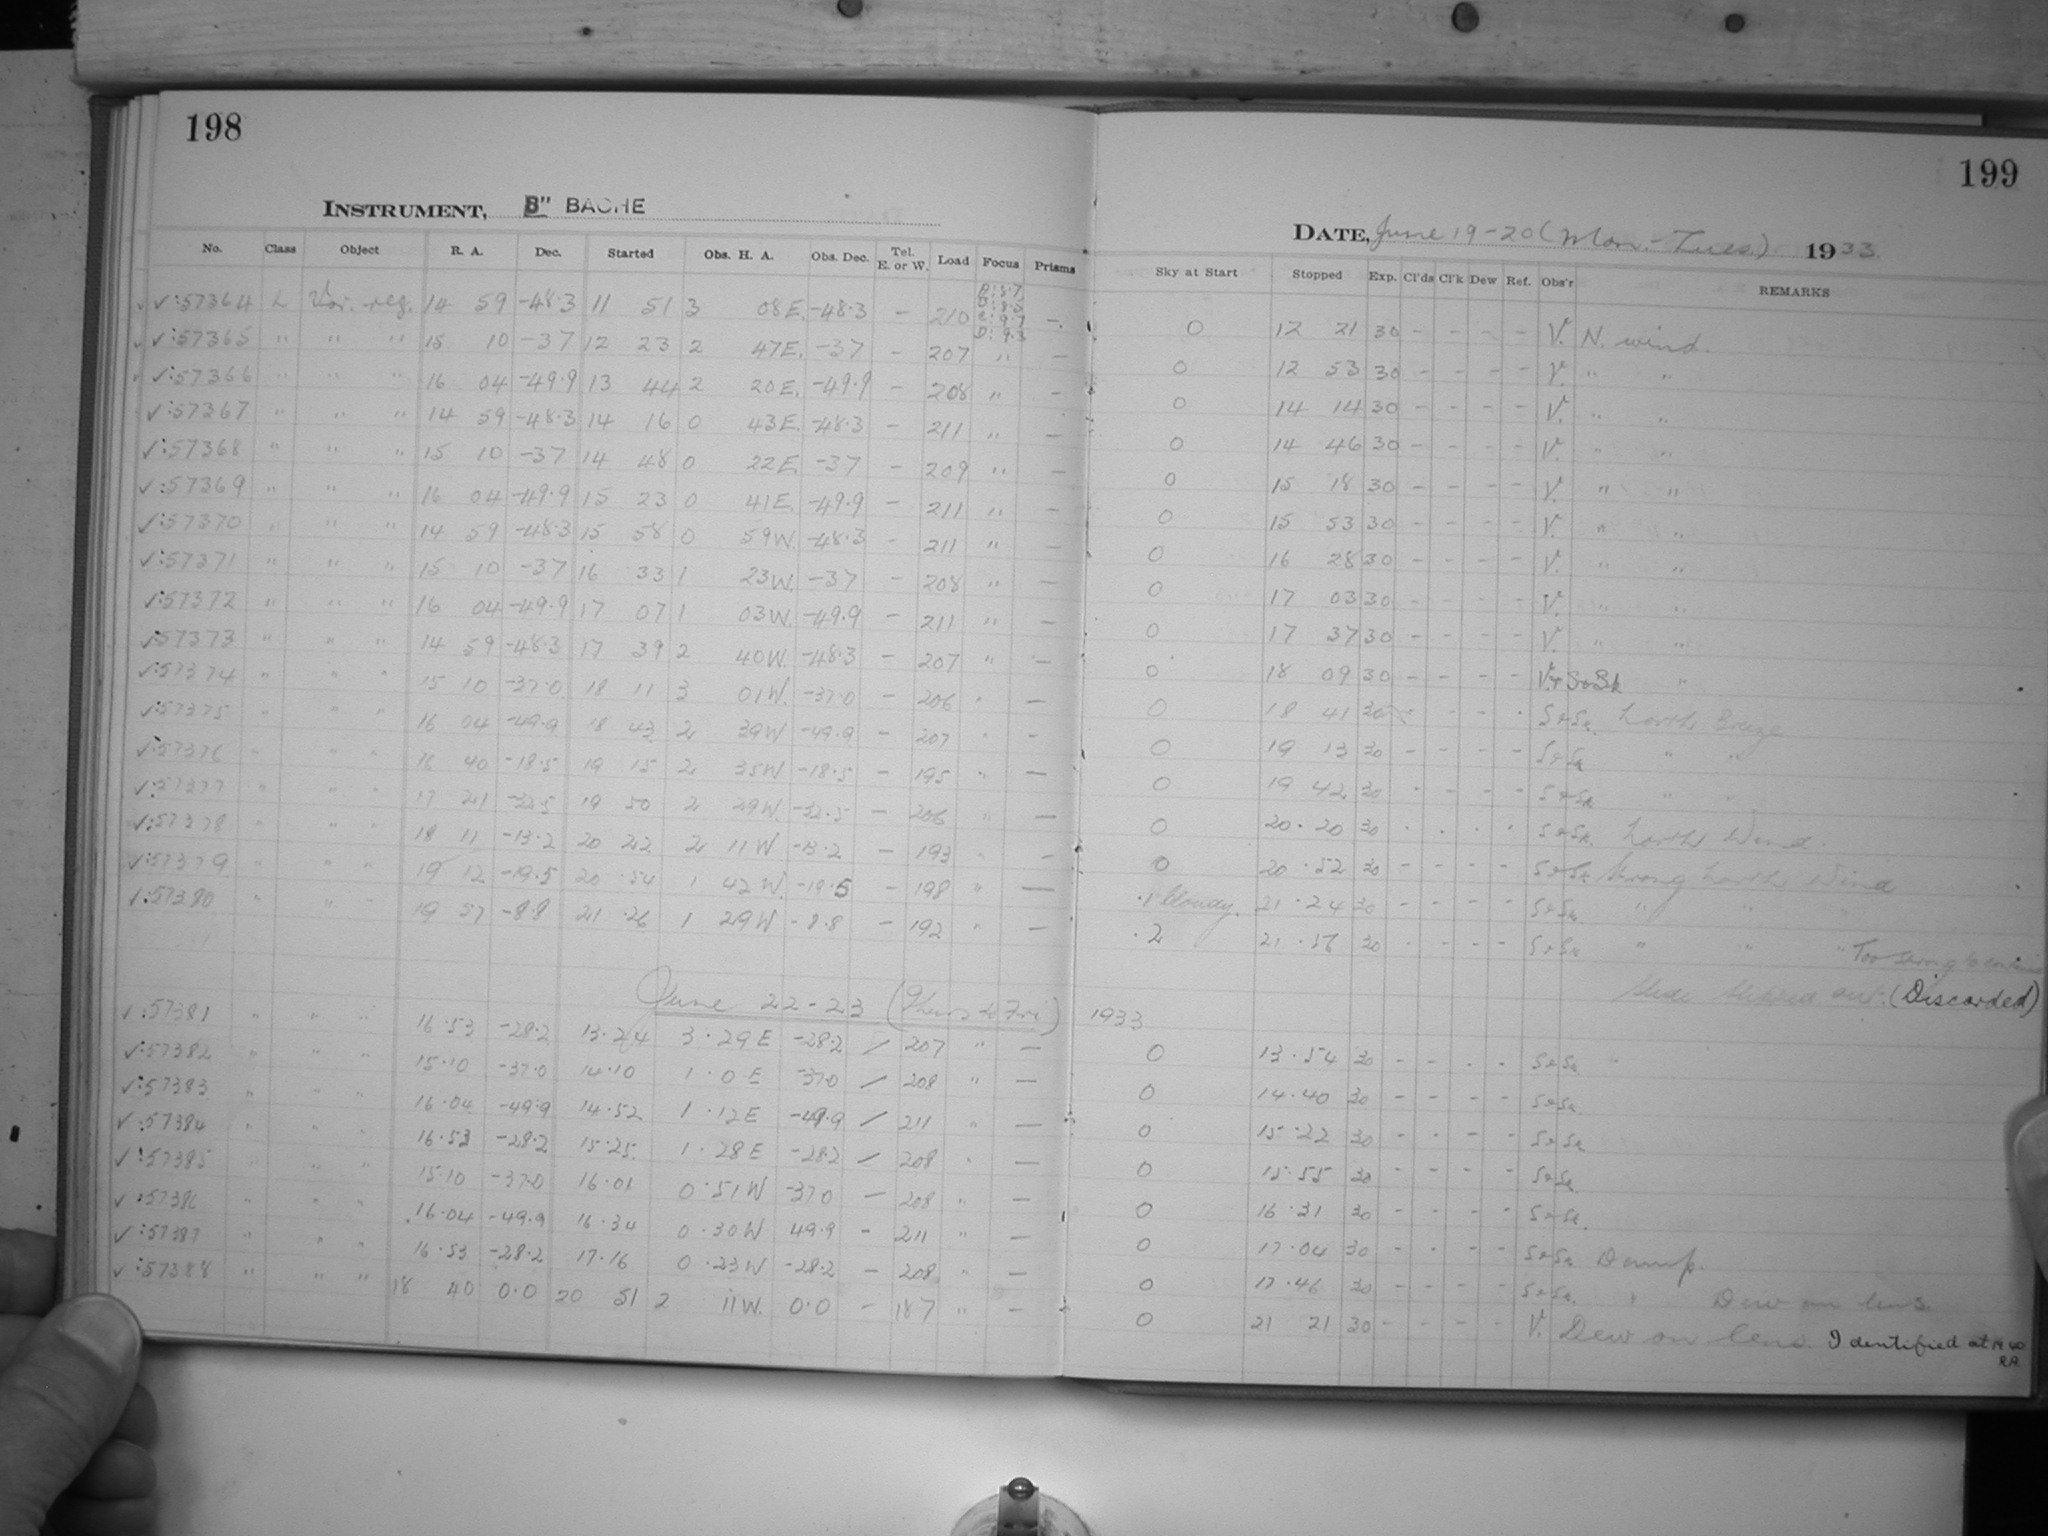 198
INSTRUMENT, B" BACHE
No. Class Object R. A. Dec. Started Obs. H. A. Obs. Dec. Tel. E. or W. Load Focus Prisms
✓:57364 L Var. reg. 14 59 -48.3 11 51 3 08 E. -48.3 - 210 -
✓:57365 " " " 15 10 -37 12 23 2 47 E. -37 - 207 " -
✓:57366 " " " 16 04 -49.9 13 44 2 20 E. -49.9 - 208 " -
✓:57367 " " " 14 59 -48.3 14 16 0 43 E. -48.3 - 211 " -
✓:57368 " " " 15 10 -37 14 48 0 22 E. -37 - 209 " -
✓:57369 " " " 16 04 -49.9 15 23 0 41 E. -49.9 - 211 " -
✓:57370 " " " 14 59 -48.3 15 58 0 59 W. -48.3 - 211 " -
✓:57371 " " " 15 10 -37 16 33 1 23 W. -37 - 208 " -
✓:57372 " " " 16 04 -49.9 17 07 1 03 W. -49.9 - 211 " -
✓:57373 " " " 14 59 -48.3 17 39 2 40 W. -48.3 - 207 " -
✓:57374 " " " 15 10 -37.0 18 11 3 01 W. -37.0 - 206 " -
✓:57375 " " " 16 04 -49.9 18 43 2 39 W -49.9 - 207 " -
✓:57376 " " " 16 40 -18.5 19 15 2 35 W -18.5 - 195 " -
✓:57377 " " " 17 21 -32.5 19 50 2 29 W. -32.5 - 206 " -
✓:57378 " " " 18 11 -13.2 20 22 2 11 W -13.2 - 193 " -
✓:57379 " " " 19 12 -19.5 20 .54 1 42 W -19.5 - 198 " -
✓:57380 " " " 19 57 -8.8 21 .26 1 29 W -8.8 - 192 " -
June 22-23 (Thurs to Fri) 1933
✓:57381 " " " 16.53 -28.2 13.24 3.29 E -28.2 / 207 " -
✓:57382 " " " 15.10 -37.0 14.10 1.0 E -37.0 / 208 " -
✓:57383 " " " 16.04 -49.9 14.52 1.12 E -49.9 / 211 " -
✓:57384 " " " 16.53 -28.2 15.25 1.28 E -28.2 / 208 " -
✓:57385 " " " 15.10 -37.0 16.01 0.51 W -37.0 - 208 " -
✓:57386 " " " 16.04 -49.9 16.34 0.30 W 49.9 - 211 " -
✓:57387 " " " 16.53 -28.2 17.16 0.23 W -28.2 - 208 " -
✓:57388 " " " 18 40 0.0 20 51 2 11 W. 0.0 - 187 " -
199
DATE, June 19-20 (Mon.-Tues.) 1933.
Sky at Start Stopped Exp. Cl'ds Cl'k Dew Ref. Obs'r REMARKS
0 12 21 30 - - - - V. N. wind.
0 12 53 30 - - - - V. " "
0 14 14 30 - - - - V. " "
0 14 46 30 - - - - V. " "
0 15 18 30 - - - - V. " "
0 15 53 30 - - - - V. " "
0 16 28 30 - - - - V. " "
0 17 03 30 - - - - V. " "
0 17 37 30 - - - - V. " "
0 18 09 30 - - - - "
0 18 41 30 North Breeze
0 19 13 30 - - - - " "
0 19 42 30 - - - - " "
0 20.20 30 North Wind.
0 20.52 30 - - - - Strong North Wind
.1 Cloudy. 21.24 30 - - - - " " "
.2 21.56 30 - - - - " " " Too strong to continue
Slide slipped out. (Discarded)
0 13.54 30 - - - - "
0 14.40 30 - - - -
0 15.22 30 - - - -
0 15.55 30 - - - -
0 16.31 30 - - - -
0 17.04 30 - - - - Damp.
0 17.46 30 - - - - " Dew on lens.
0 21 21 30 - - - - V. Dew on lens. Identified at 18 40 R.A.